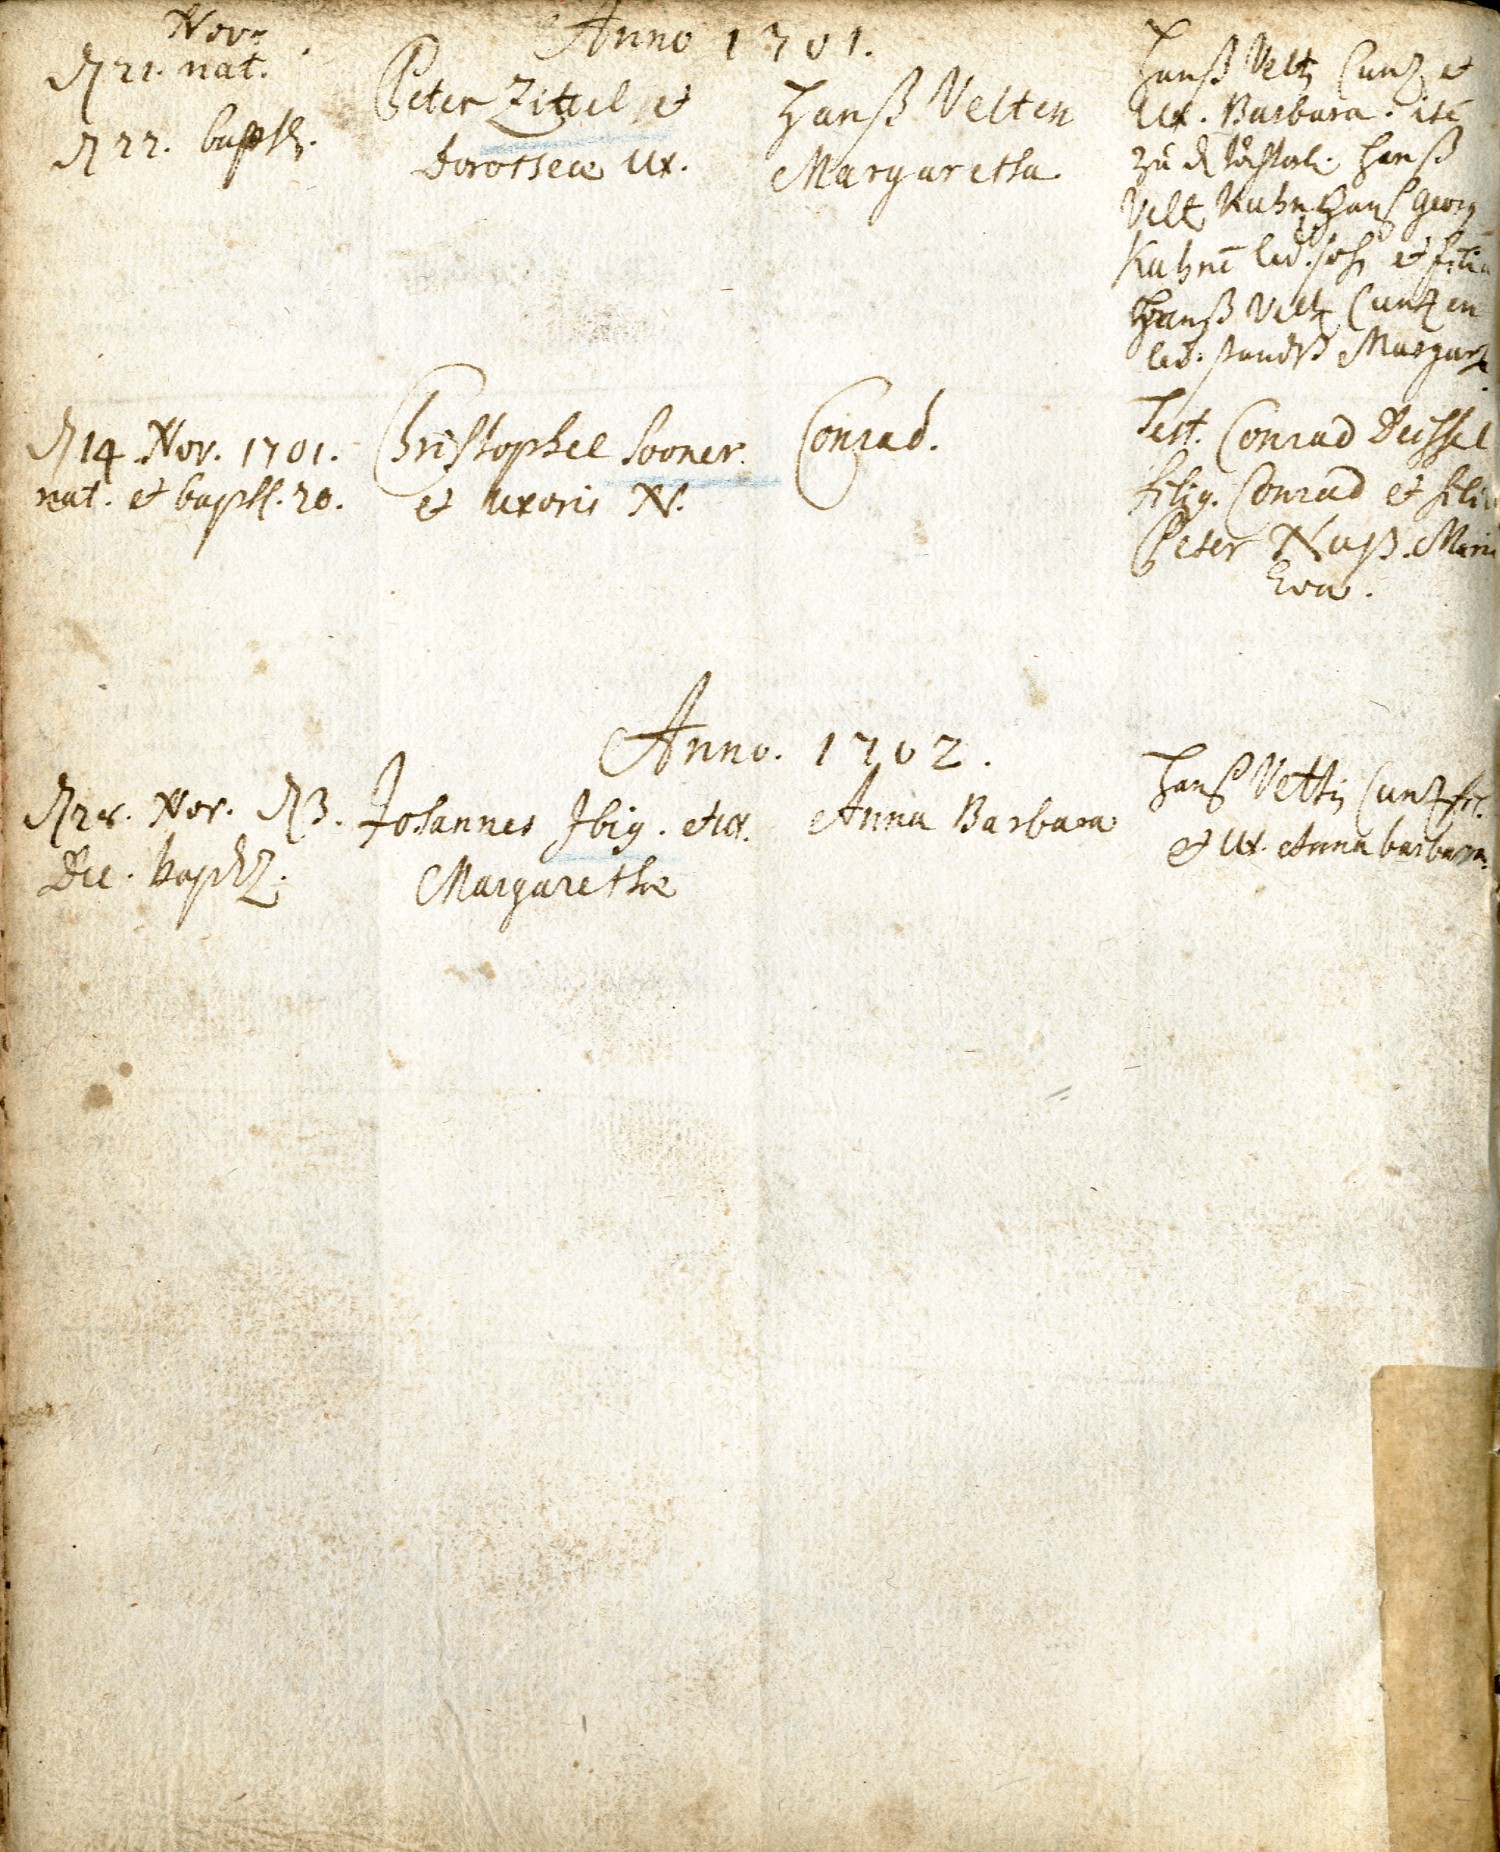 Anno 1701.
Nov.
d 21. nat.
d 22. bapt.
Peter Zittel et
Dorotheae ux.
Hanß Velten
Margaretha
Hanß Velt Cuntz et
Ux. Barbara. ite
zu d Hanß
Velt Kuhn Hanß Georg
Kuhn led. et filia
Hanß Velt Cuntzen
led. standß Margar
d 14 Nov. 1701.
nat. et bapt. 20.
Christophel Sooner.
et uxoris N.
Conrad.
Test. Conrad Deissel
filiq. Conrad et filia
Peter Nuß. Mari
Eva.
Anno. 1702.
d Nov. d 3.
Dec. bapt.
Johannes Ibig. et ux.
Margarethae
Anna Barbara
Hanß Veltin Cuntz
et ux. Anna barbara.